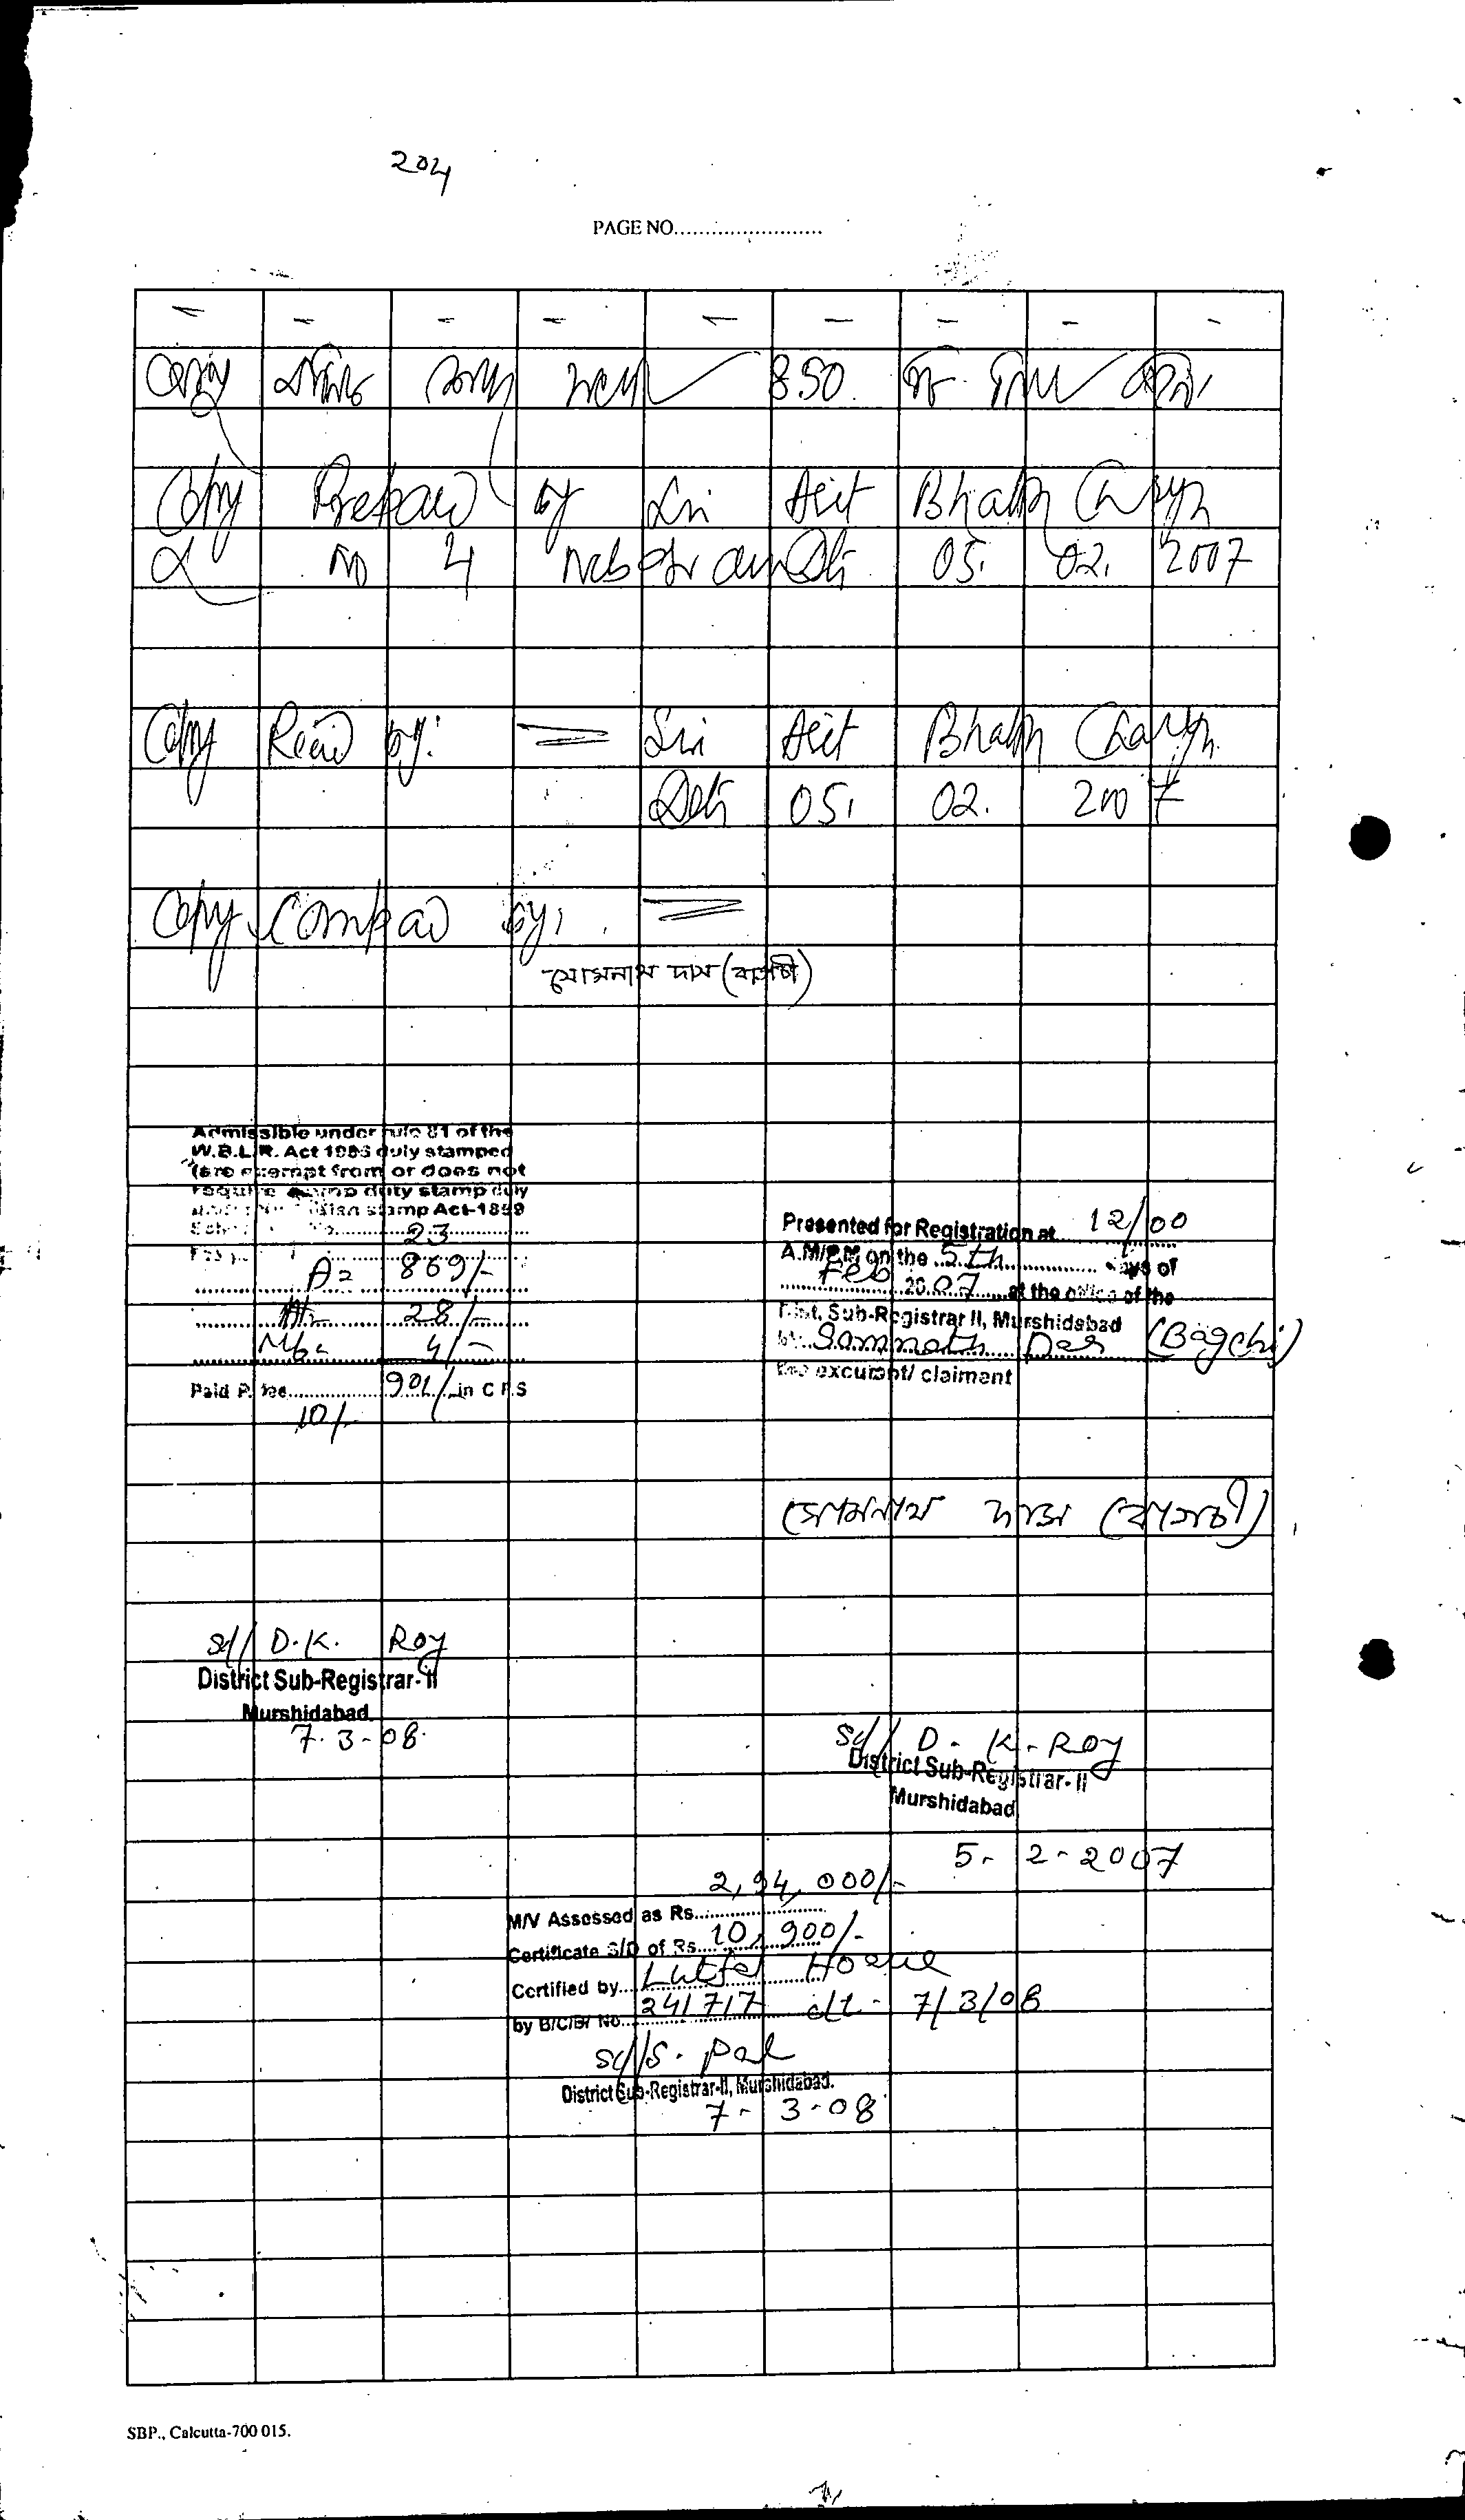 204
PAGE NO........................
850
Copy Prepared by Sri Asit Bhatta Charya
L No 4 05. 02. 2007
Copy Read by: Sri Asit Bhatta Charya
05. 02. 2007
Copy Compared by:
সোমনাথ দাস (বাগচী)
Admissible under rule 81 of the
W.B.L.R. Act 1956 duly stamped
(are exempt from or does not
require stamp duty stamp duly
stamp Act-1899
23
A= 869/-
28/-
Mb= 4/-
Paid P. fee 901/- in C F S
10/-
Presented for Registration at 12/00
A.M/P.M on the 5th days of
Feb 2007 at the office of the
Dist. Sub-Registrar II, Murshidabad
by Somnath Das (Bagchi)
the claiment
সোমনাথ দাস (বাগচী)
Sd/ D.K. Roy
District Sub-Registrar-II
Murshidabad
7.3-08.
Sd/ D. K. Roy
District Sub-Registrar-II
Murshidabad
5-2-2007
2,94,000/-
M/V Assessed as Rs
Certificate S/D of Rs. 10,900/-
Certified by Lutfel Hoque
by B/C/B/ No. 241717 dt- 7/3/08
Sd/S. Pal
District Sub-Registrar-II, Murshidabad.
7-3-08
SBP., Calcutta-700 015.